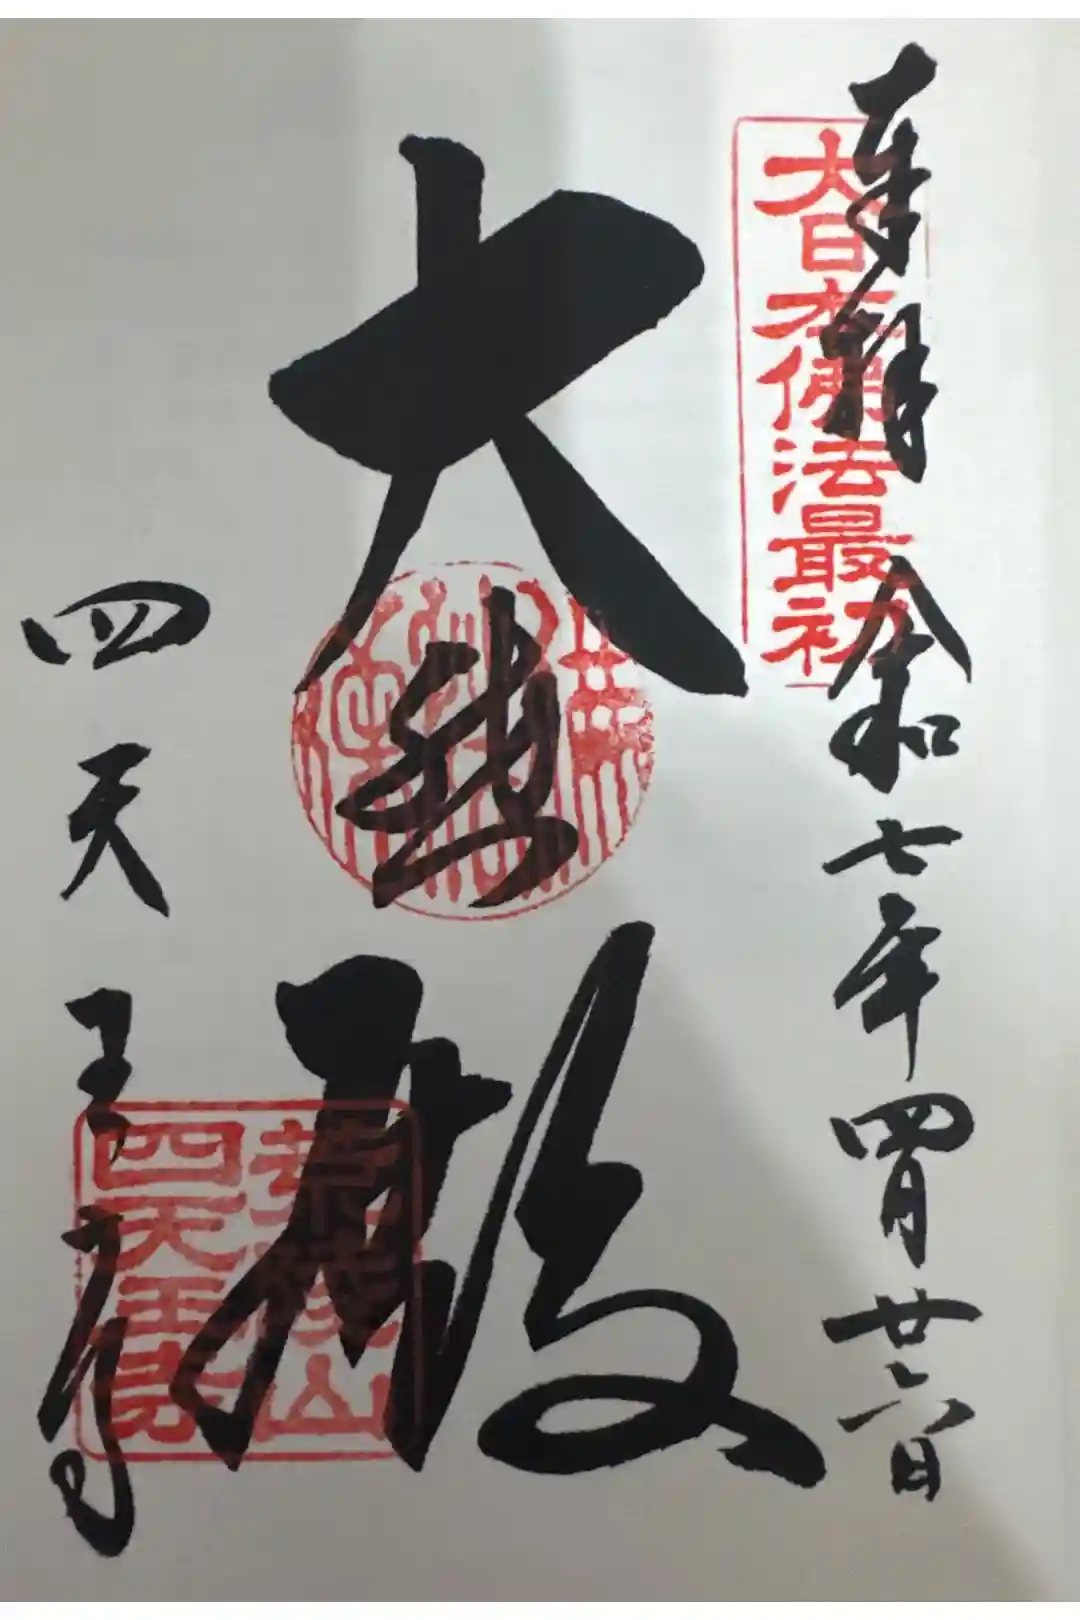 奉拝 令和七年四月廿六日
大日本佛法最初
大熊殿
四天王寺
荒陵山
四天王寺